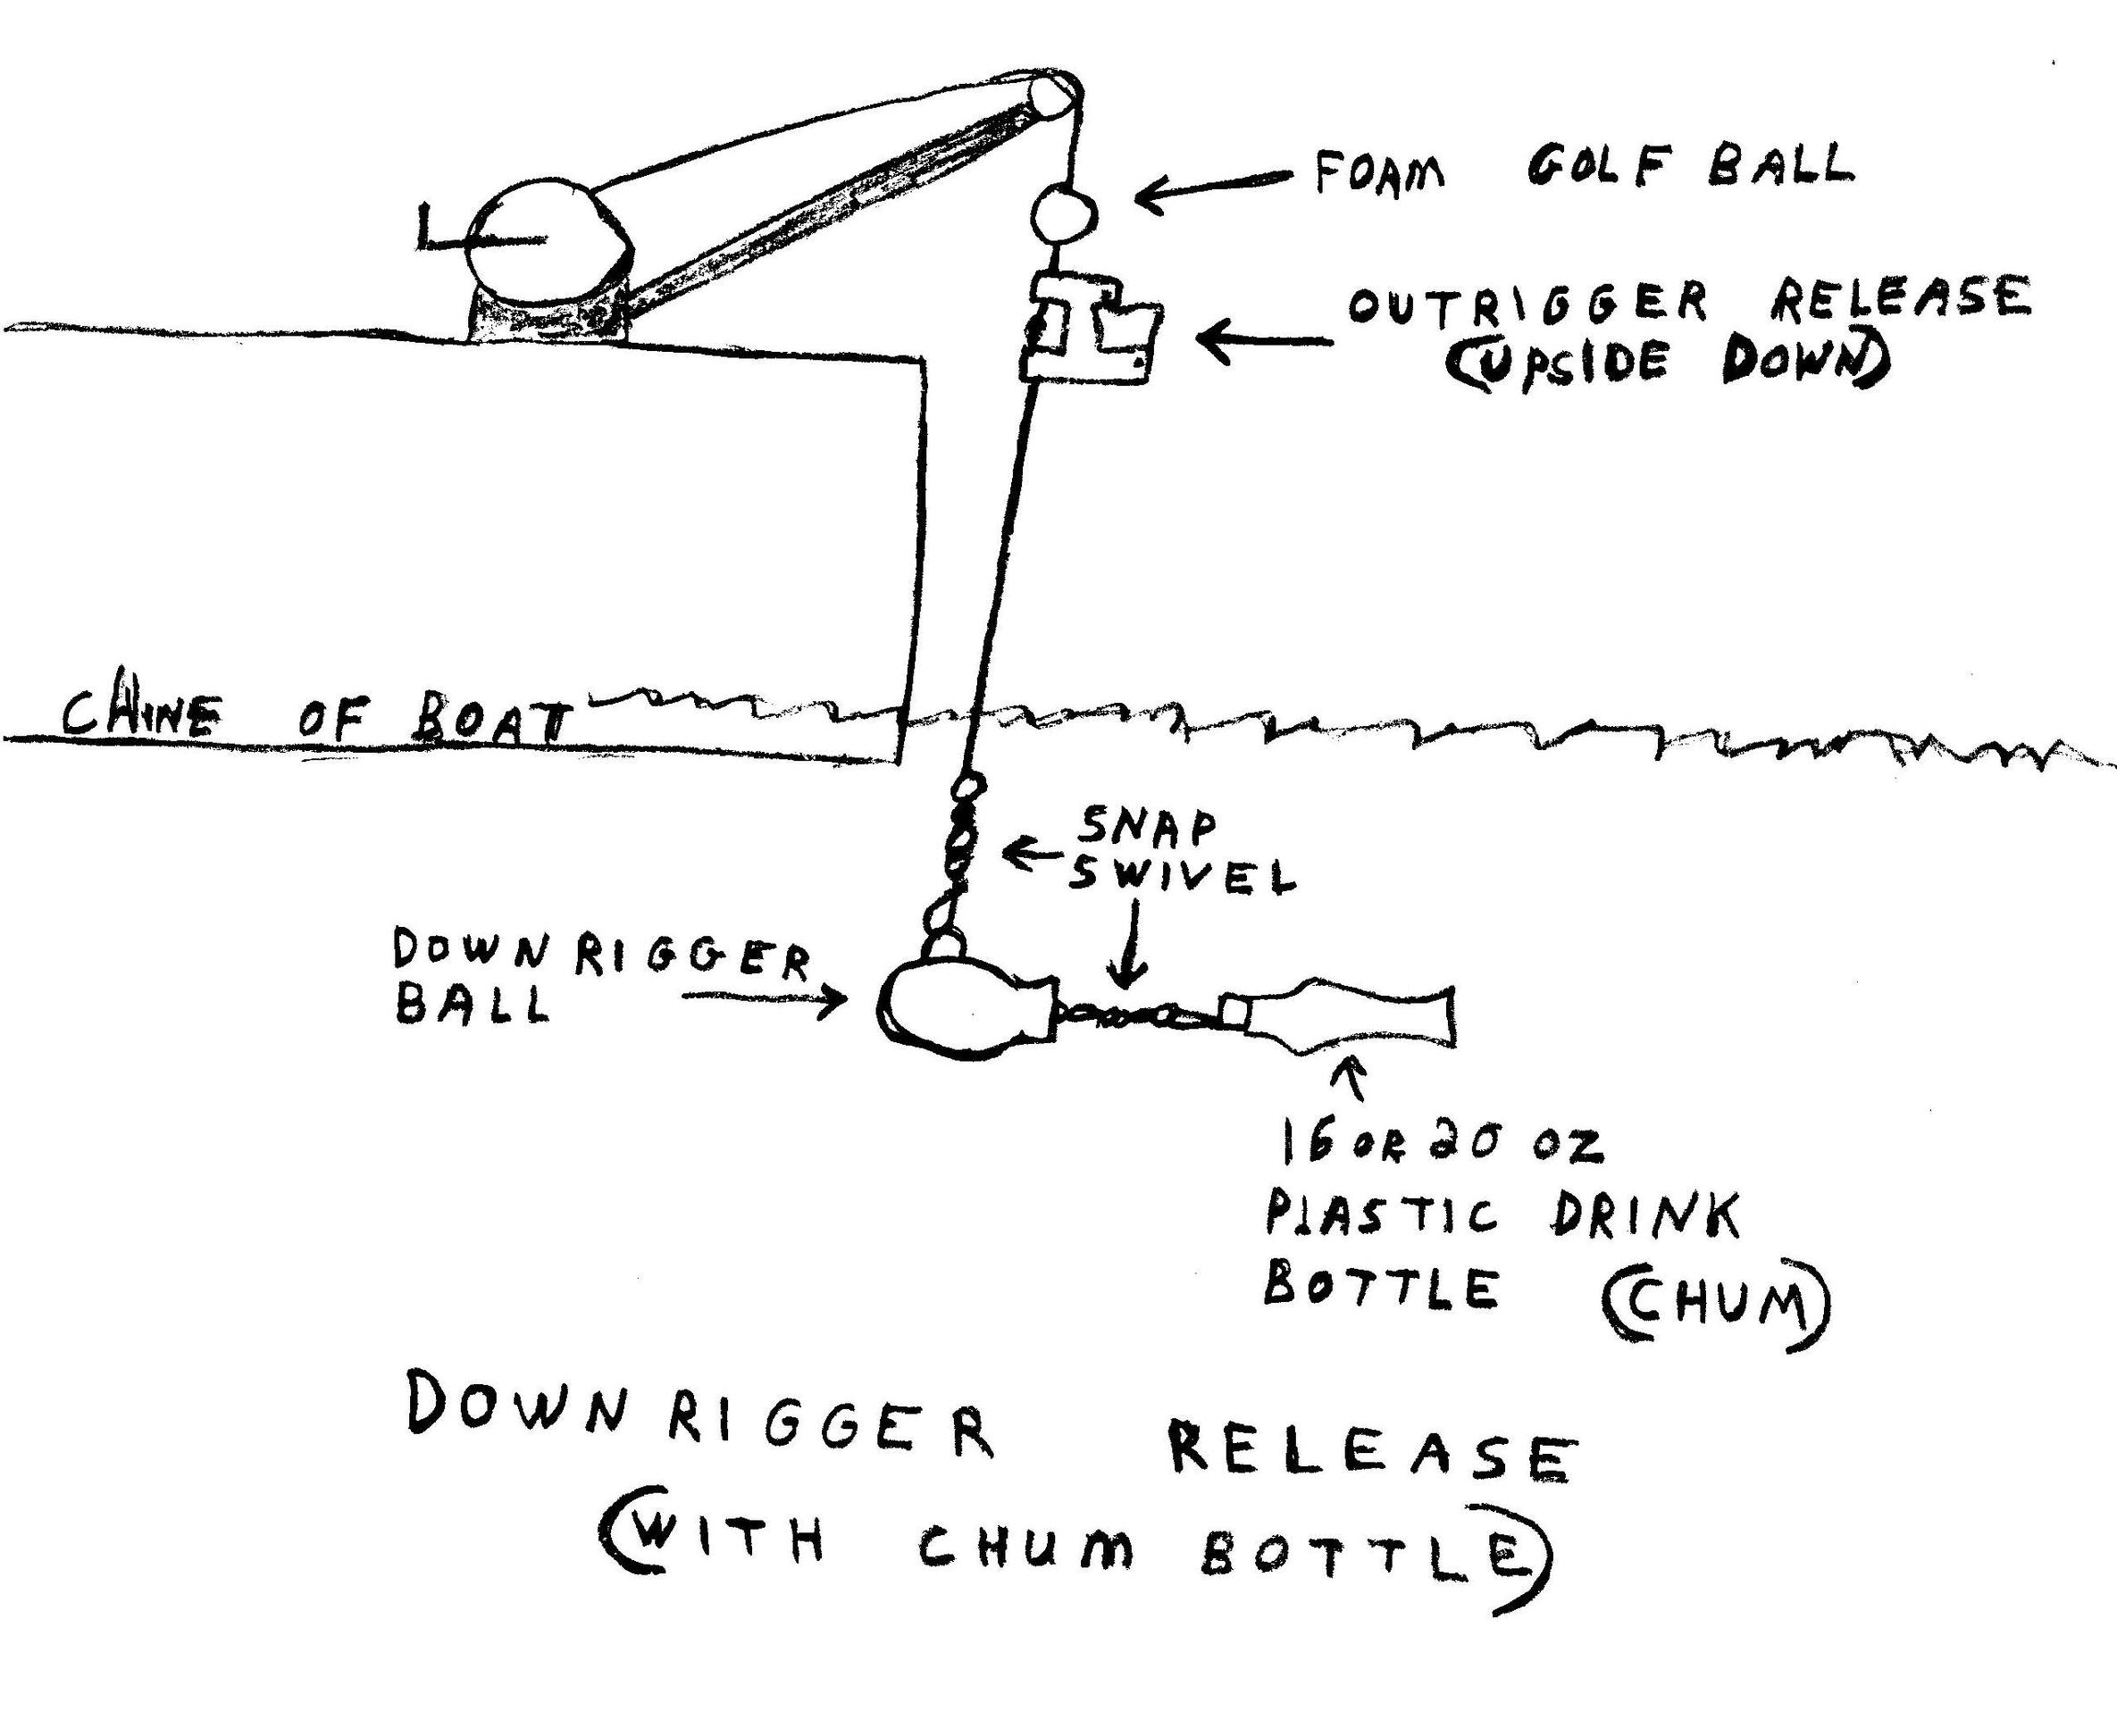 FOAM GOLF BALL
OUTRIGGER RELEASE
(UPSIDE DOWN)
CHINE OF BOAT
SNAP
SWIVEL
DOWNRIGGER
BALL
16 OR 20 OZ
PLASTIC DRINK
BOTTLE (CHUM)
DOWNRIGGER RELEASE
(WITH CHUM BOTTLE)